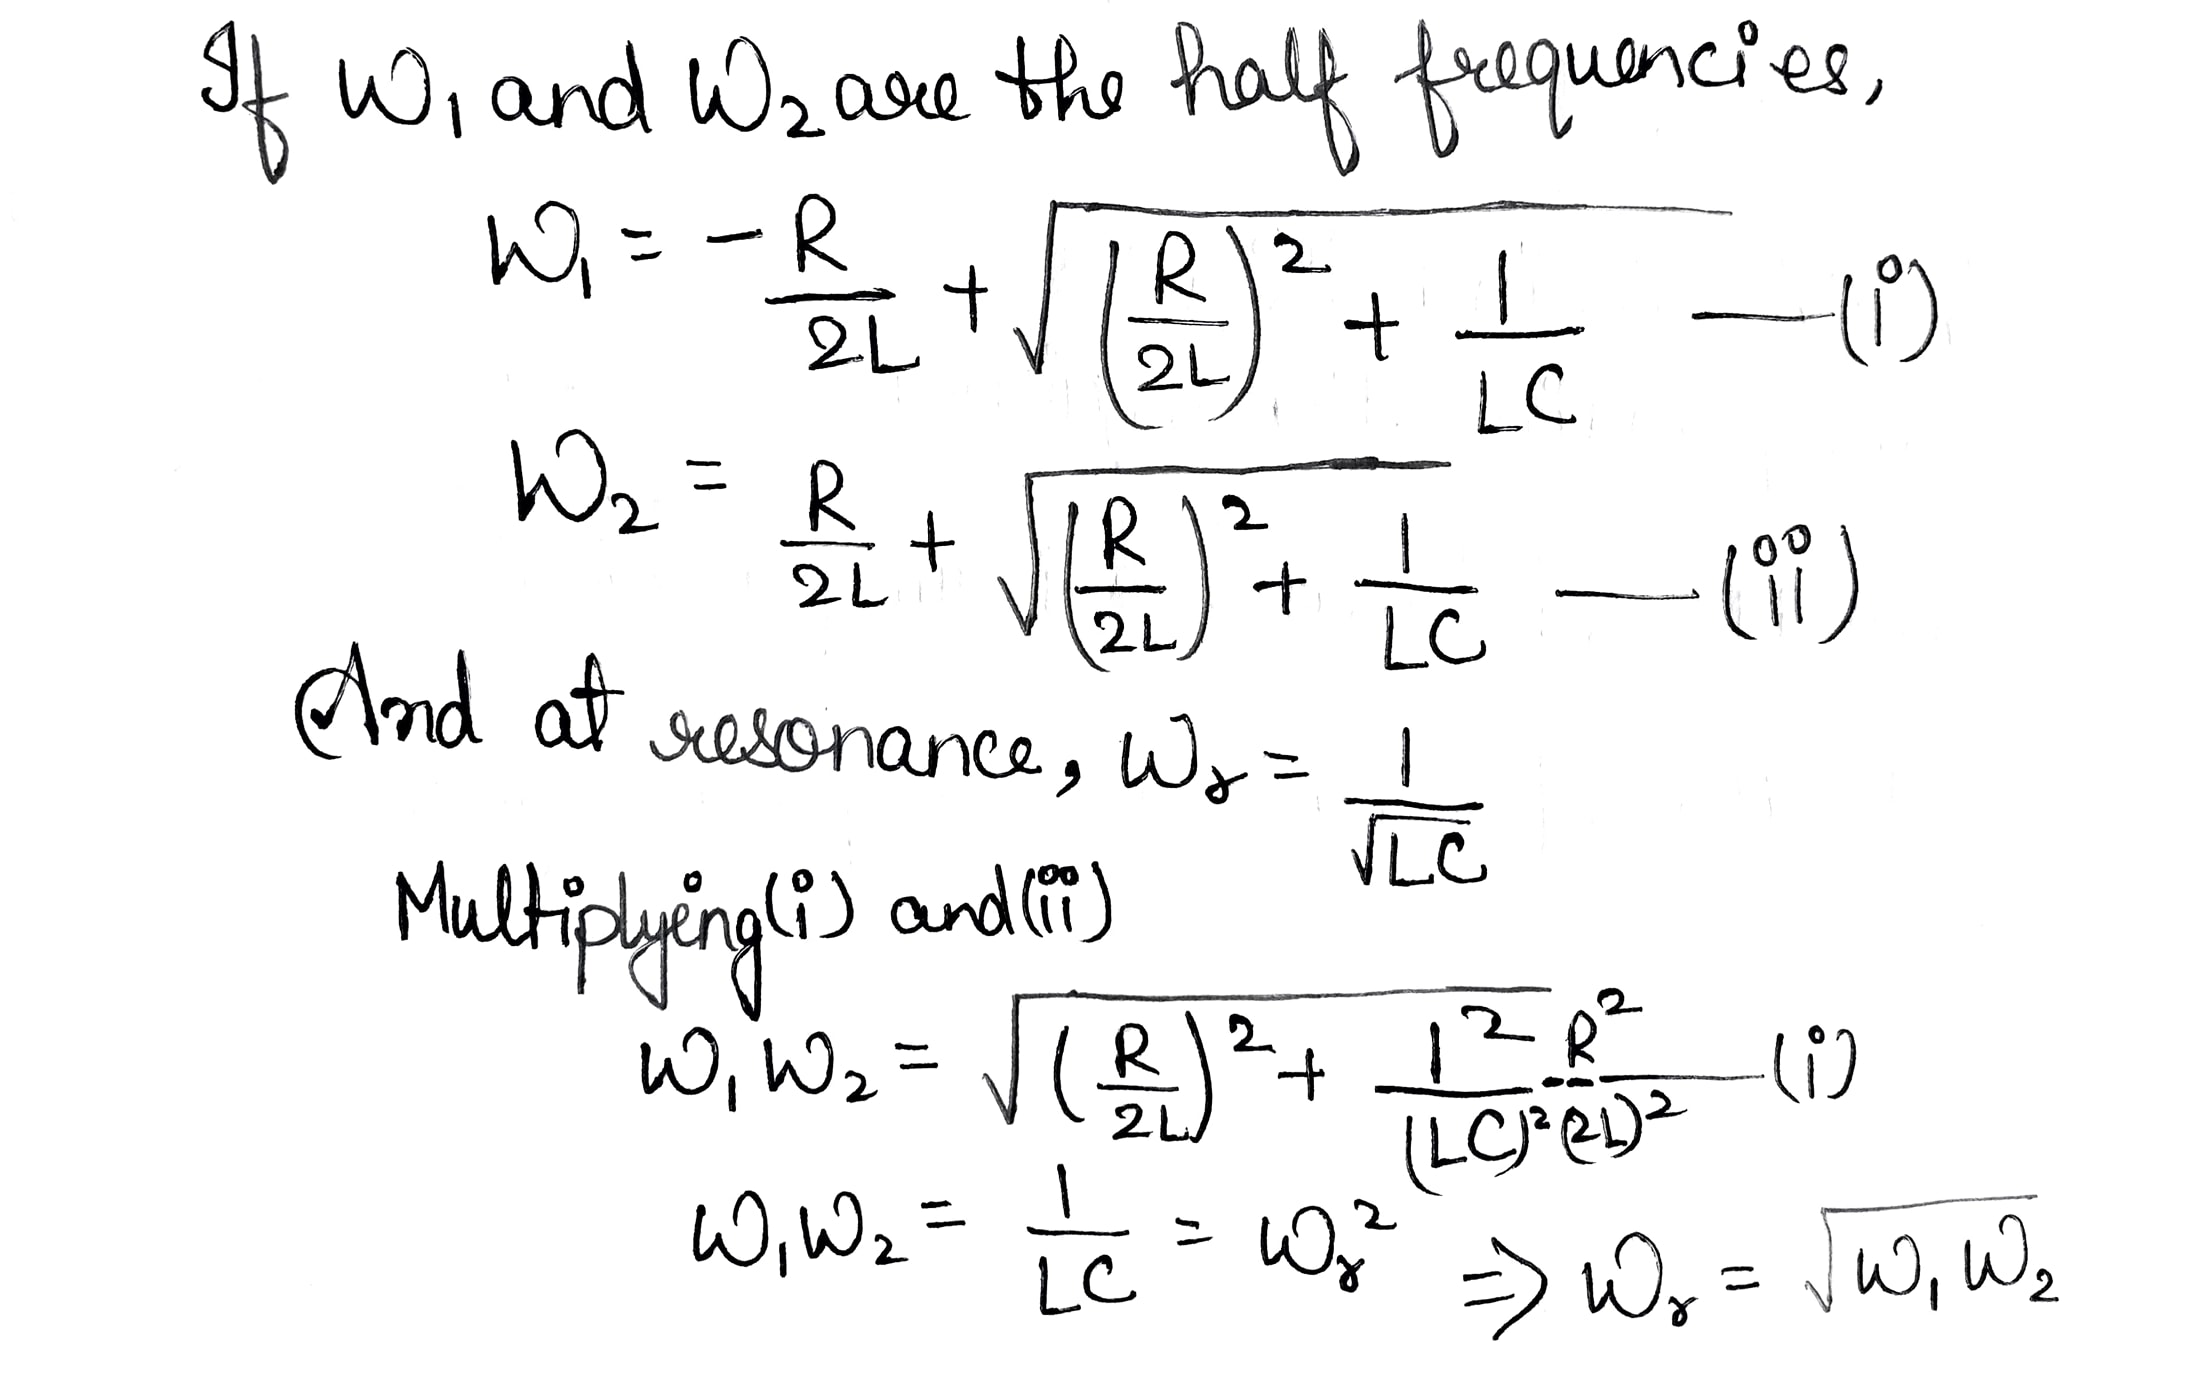 If ω₁ and ω₂ are the half frequencies,
ω₁ = -R/2L + √((R/2L)² + 1/LC) —(i)
ω₂ = R/2L + √((R/2L)² + 1/LC) —(ii)
And at resonance, ωr = 1/√LC
Multiplying (i) and (ii)
ω₁ω₂ = √((R/2L)² + 1²/(LC)²) - R²/(2L)² —(i)
ω₁ω₂ = 1/LC = ωr² ⇒ ωr = √ω₁ω₂